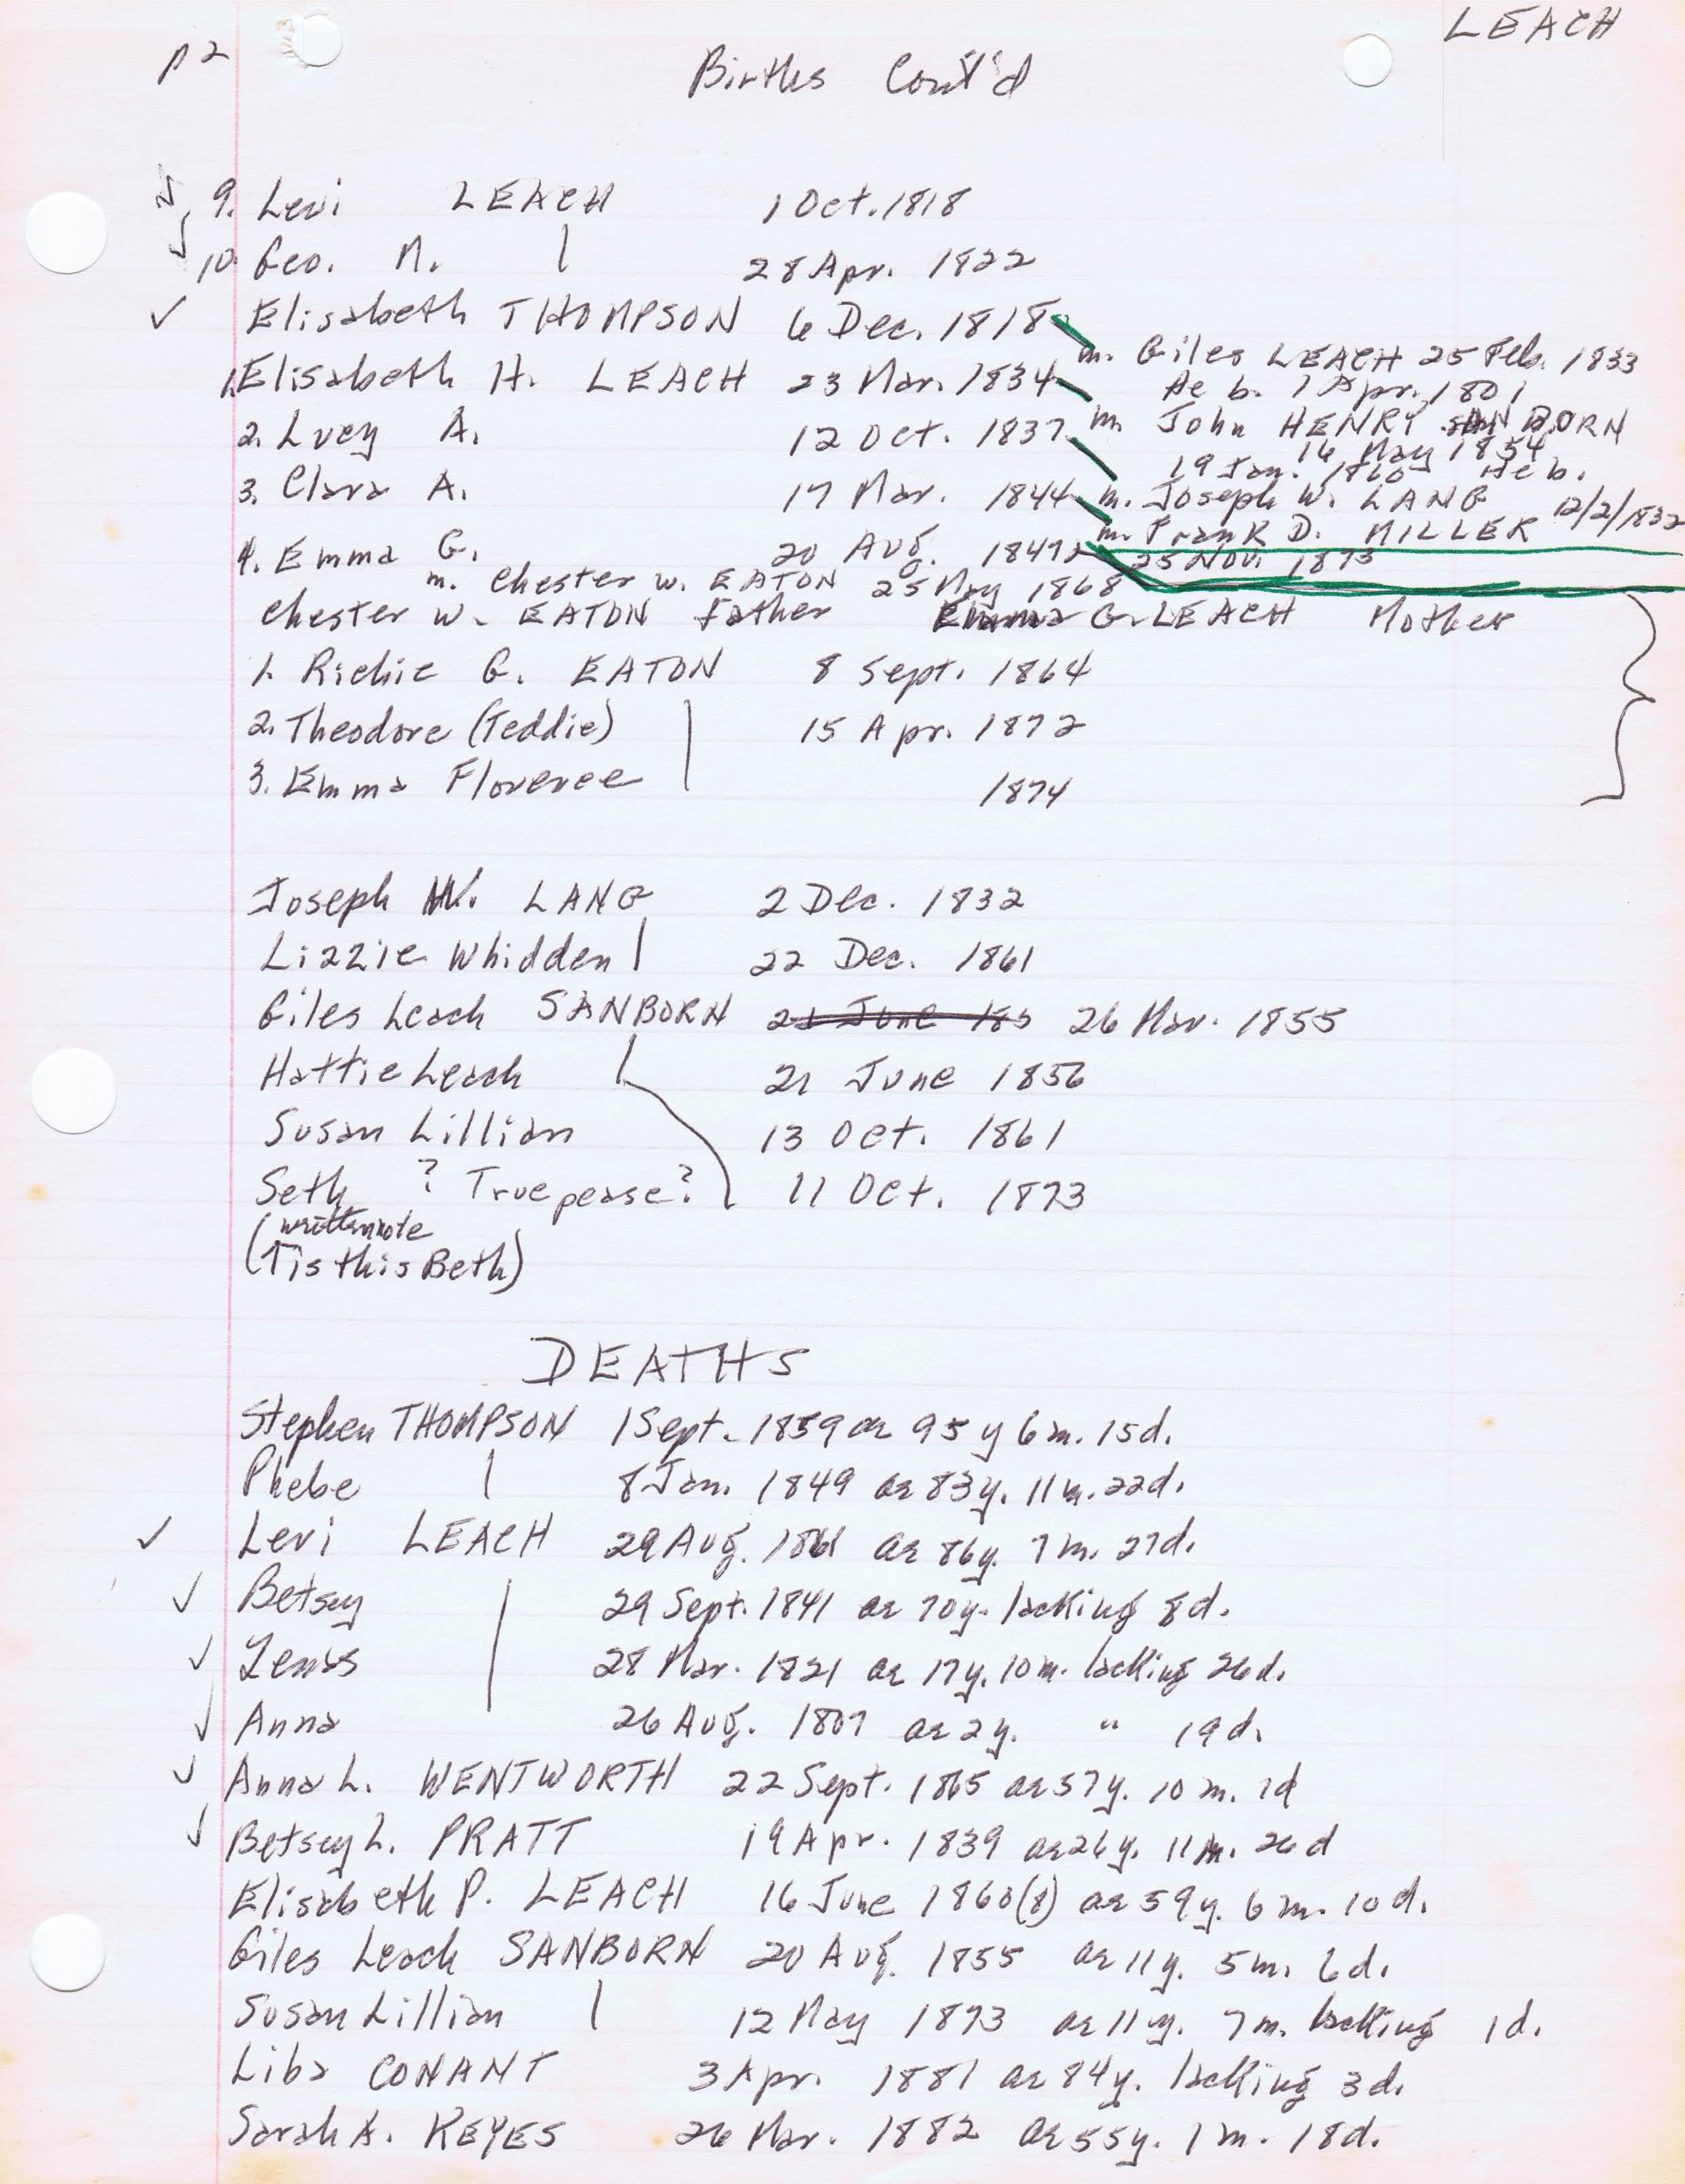 p 2
LEACH
Births Cont'd
9. Levi LEACH 1 Oct. 1818
10. Geo. M. | 28 Apr. 1822
✓ Elisabeth THOMPSON 6 Dec. 1818
m. Giles LEACH 25 Feb. 1833
He b. 1 Apr. 1801
1. Elisabeth H. LEACH 23 Mar. 1834
m. John HENRY SANBORN
16 May 1854
2. Lucy A. 12 Oct. 1837
19 Jan. 1860 He b.
m. Joseph W. LANG 12/2/1832
3. Clara A. 17 Mar. 1844
m. Frank D. MILLER
25 Nov. 1873
4. Emma G. 20 Aug. 1849
m. Chester W. EATON 25 May 1868
Chester W. EATON Father Emma G. LEACH Mother
1. Richie G. EATON 8 Sept. 1864
2. Theodore (Teddie) | 15 Apr. 1872
3. Emma Florence | 1874
Joseph W. LANG 2 Dec. 1832
Lizzie Whidden | 22 Dec. 1861
Giles Leach SANBORN 21 June 185 26 Mar. 1855
Hattie Leach 21 June 1856
Susan Lillian 13 Oct. 1861
Seth ? Truepease? 11 Oct. 1873
(written note
(Tis this Beth)
DEATHS
Stephen THOMPSON 1 Sept. 1859 ae 95 y 6 m. 15 d.
Phebe | 8 Jan. 1849 ae 83 y. 11 m. 22 d.
✓ Levi LEACH 29 Aug. 1861 ae 86 y. 7 m. 27 d.
✓ Betsey | 29 Sept. 1841 ae 70 y. lacking 8 d.
✓ Zenas | 28 Mar. 1821 ae 17 y. 10 m. lacking 26 d.
✓ Anna 26 Aug. 1807 ae 2 y. " 19 d.
✓ Anna L. WENTWORTH 22 Sept. 1865 ae 57 y. 10 m. 1 d
✓ Betsey L. PRATT 19 Apr. 1839 ae 26 y. 11 m. 26 d
Elisabeth P. LEACH 16 June 1860(8) ae 59 y. 6 m. 10 d.
Giles Leach SANBORN 20 Aug. 1855 ae 11 y. 5 m. 6 d.
Susan Lillian | 12 May 1873 ae 11 y. 7 m. lacking 1 d.
Liba CONANT 3 Apr. 1881 ae 84 y. lacking 3 d.
Sarah A. KEYES 26 Mar. 1882 ae 55 y. 1 m. 18 d.